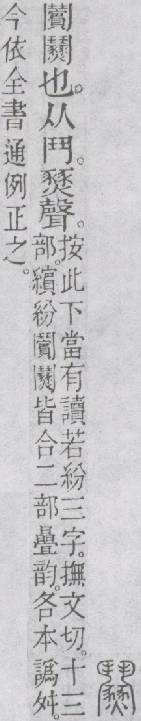 也。从鬥。燹聲。
按此下當有讀若紛三字。撫文切。十三
部。繽紛皆合二部疊韵。各本譌舛。
今依全書通例正之。